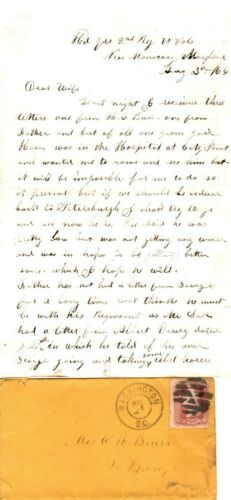 Hd Qrs 2nd Reg Vt Vols
Near Monocacy Maryland
Aug 3rd /64
Dear Wife
Last night I receive three
letters one from Miss one from
Father and but of all one from you
was in the Hospital at City Point
and wanted me to come and see him but
it will be impossible for me to do so
at present but if we should be ordered
back to Petersburgh I shall try to go
and see how he is. He said he was
pretty but was not getting any worse
and was in hopes to be getting better
soon which I hope he will.
Father has not had a letter from George
for a long time but thinks he must
be with his Regiment as Mr
had a letter from Albert dated
in which he told of his and
George going and taking some rebel horses
WASHINGTON
D.C.
Mrs